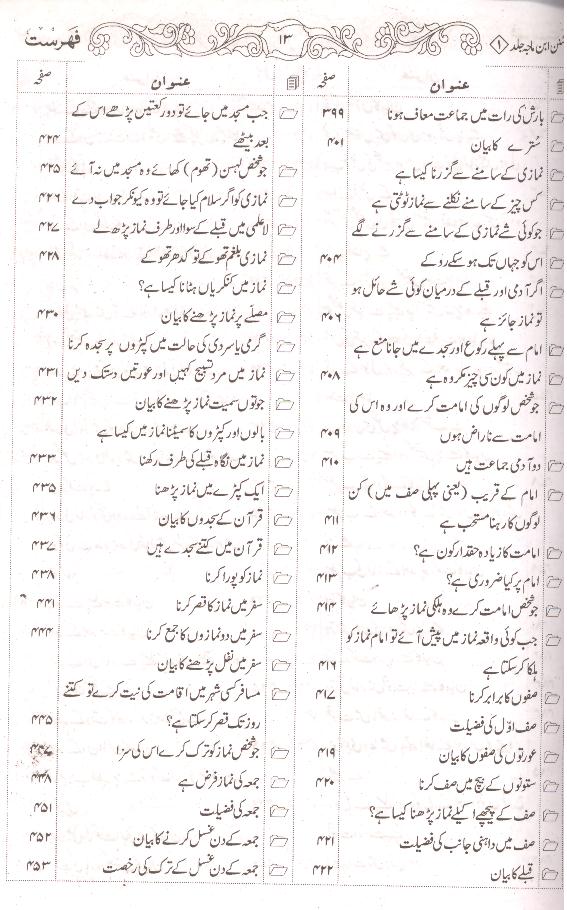 سُنن ابن ماجہ جلد ۱
۱۳
فہرست
عنوان
صفحہ
بارش کی رات میں جماعت معاف ہونا ۳۹۹
سُترے کا بیان ۴۰۱
نمازی کے سامنے سے گزرنا کیسا ہے
کس چیز کے سامنے نکلنے سے نماز ٹوٹتی ہے
جو کوئی شے نمازی کے سامنے سے گزرنے لگے
اس کو جہاں تک ہو سکے روکے ۴۰۴
اگر آدمی اور قبلے کے درمیان کوئی شے حائل ہو
تو نماز جائز ہے ۴۰۶
امام سے پہلے رکوع اور سجدے میں جانا منع ہے
نماز میں کون سی چیز مکروہ ہے ۴۰۸
جو شخص لوگوں کی امامت کرے اور وہ اس کی
امامت سے ناراض ہوں ۴۰۹
دو آدمی جماعت ہیں ۴۱۰
امام کے قریب (یعنی پہلی صف میں) کن
لوگوں کا رہنا مستحب ہے ۴۱۱
امامت کا زیادہ حقدار کون ہے؟ ۴۱۲
امام پر کیا ضروری ہے؟ ۴۱۳
جو شخص امامت کرے وہ ہلکی نماز پڑھائے ۴۱۴
جب کوئی واقعہ نماز میں پیش آئے تو امام نماز کو
ہلکا کر سکتا ہے ۴۱۶
صفوں کا برابر کرنا ۴۱۷
صف اوّل کی فضیلت
عورتوں کی صفوں کا بیان ۴۱۹
ستونوں کے بیچ میں صف کرنا ۴۲۰
صف کے پیچھے اکیلے نماز پڑھنا کیسا ہے؟
صف میں داہنی جانب کی فضیلت ۴۲۱
قبلے کا بیان ۴۲۲
عنوان
صفحہ
جب مسجد میں جائے تو دو رکعتیں پڑھے اس کے
بعد بیٹھے ۴۲۴
جو شخص لہسن (تھوم) کھائے وہ مسجد میں نہ آئے ۴۲۵
نمازی کو اگر سلام کیا جائے تو وہ کیونکر جواب دے ۴۲۶
لاعلمی میں قبلے کے سوا اور طرف نماز پڑھ لے ۴۲۷
نمازی بلغم تھوکے تو کدھر تھوکے ۴۲۸
نماز میں کنکریاں ہٹانا کیسا ہے؟
مصلّے پر نماز پڑھنے کا بیان ۴۳۰
گرمی یا سردی کی حالت میں کپڑوں پر سجدہ کرنا
نماز میں مرد تسبیح کہیں اور عورتیں دستک دیں ۴۳۱
جوتوں سمیت نماز پڑھنے کا بیان ۴۳۲
بالوں اور کپڑوں کا سمیٹنا نماز میں کیسا ہے
نماز میں نگاہ قبلے کی طرف رکھنا ۴۳۳
ایک کپڑے میں نماز پڑھنا ۴۳۵
قرآن کے سجدوں کا بیان ۴۳۶
قرآن میں کتنے سجدے ہیں ۴۳۷
نماز کو پورا کرنا ۴۳۸
سفر میں نماز کا قصر کرنا ۴۴۱
سفر میں دو نمازوں کا جمع کرنا ۴۴۴
سفر میں نفل پڑھنے کا بیان
مسافر کسی شہر میں اقامت کی نیت کرے تو کتنے
روز تک قصر کر سکتا ہے؟ ۴۴۵
جو شخص نماز کو ترک کرے اس کی سزا ۴۴۷
جمعہ کی نماز فرض ہے ۴۴۸
جمعہ کی فضیلت ۴۵۱
جمعہ کے دن غسل کرنے کا بیان ۴۵۲
جمعہ کے دن غسل کے ترک کی رخصت ۴۵۳